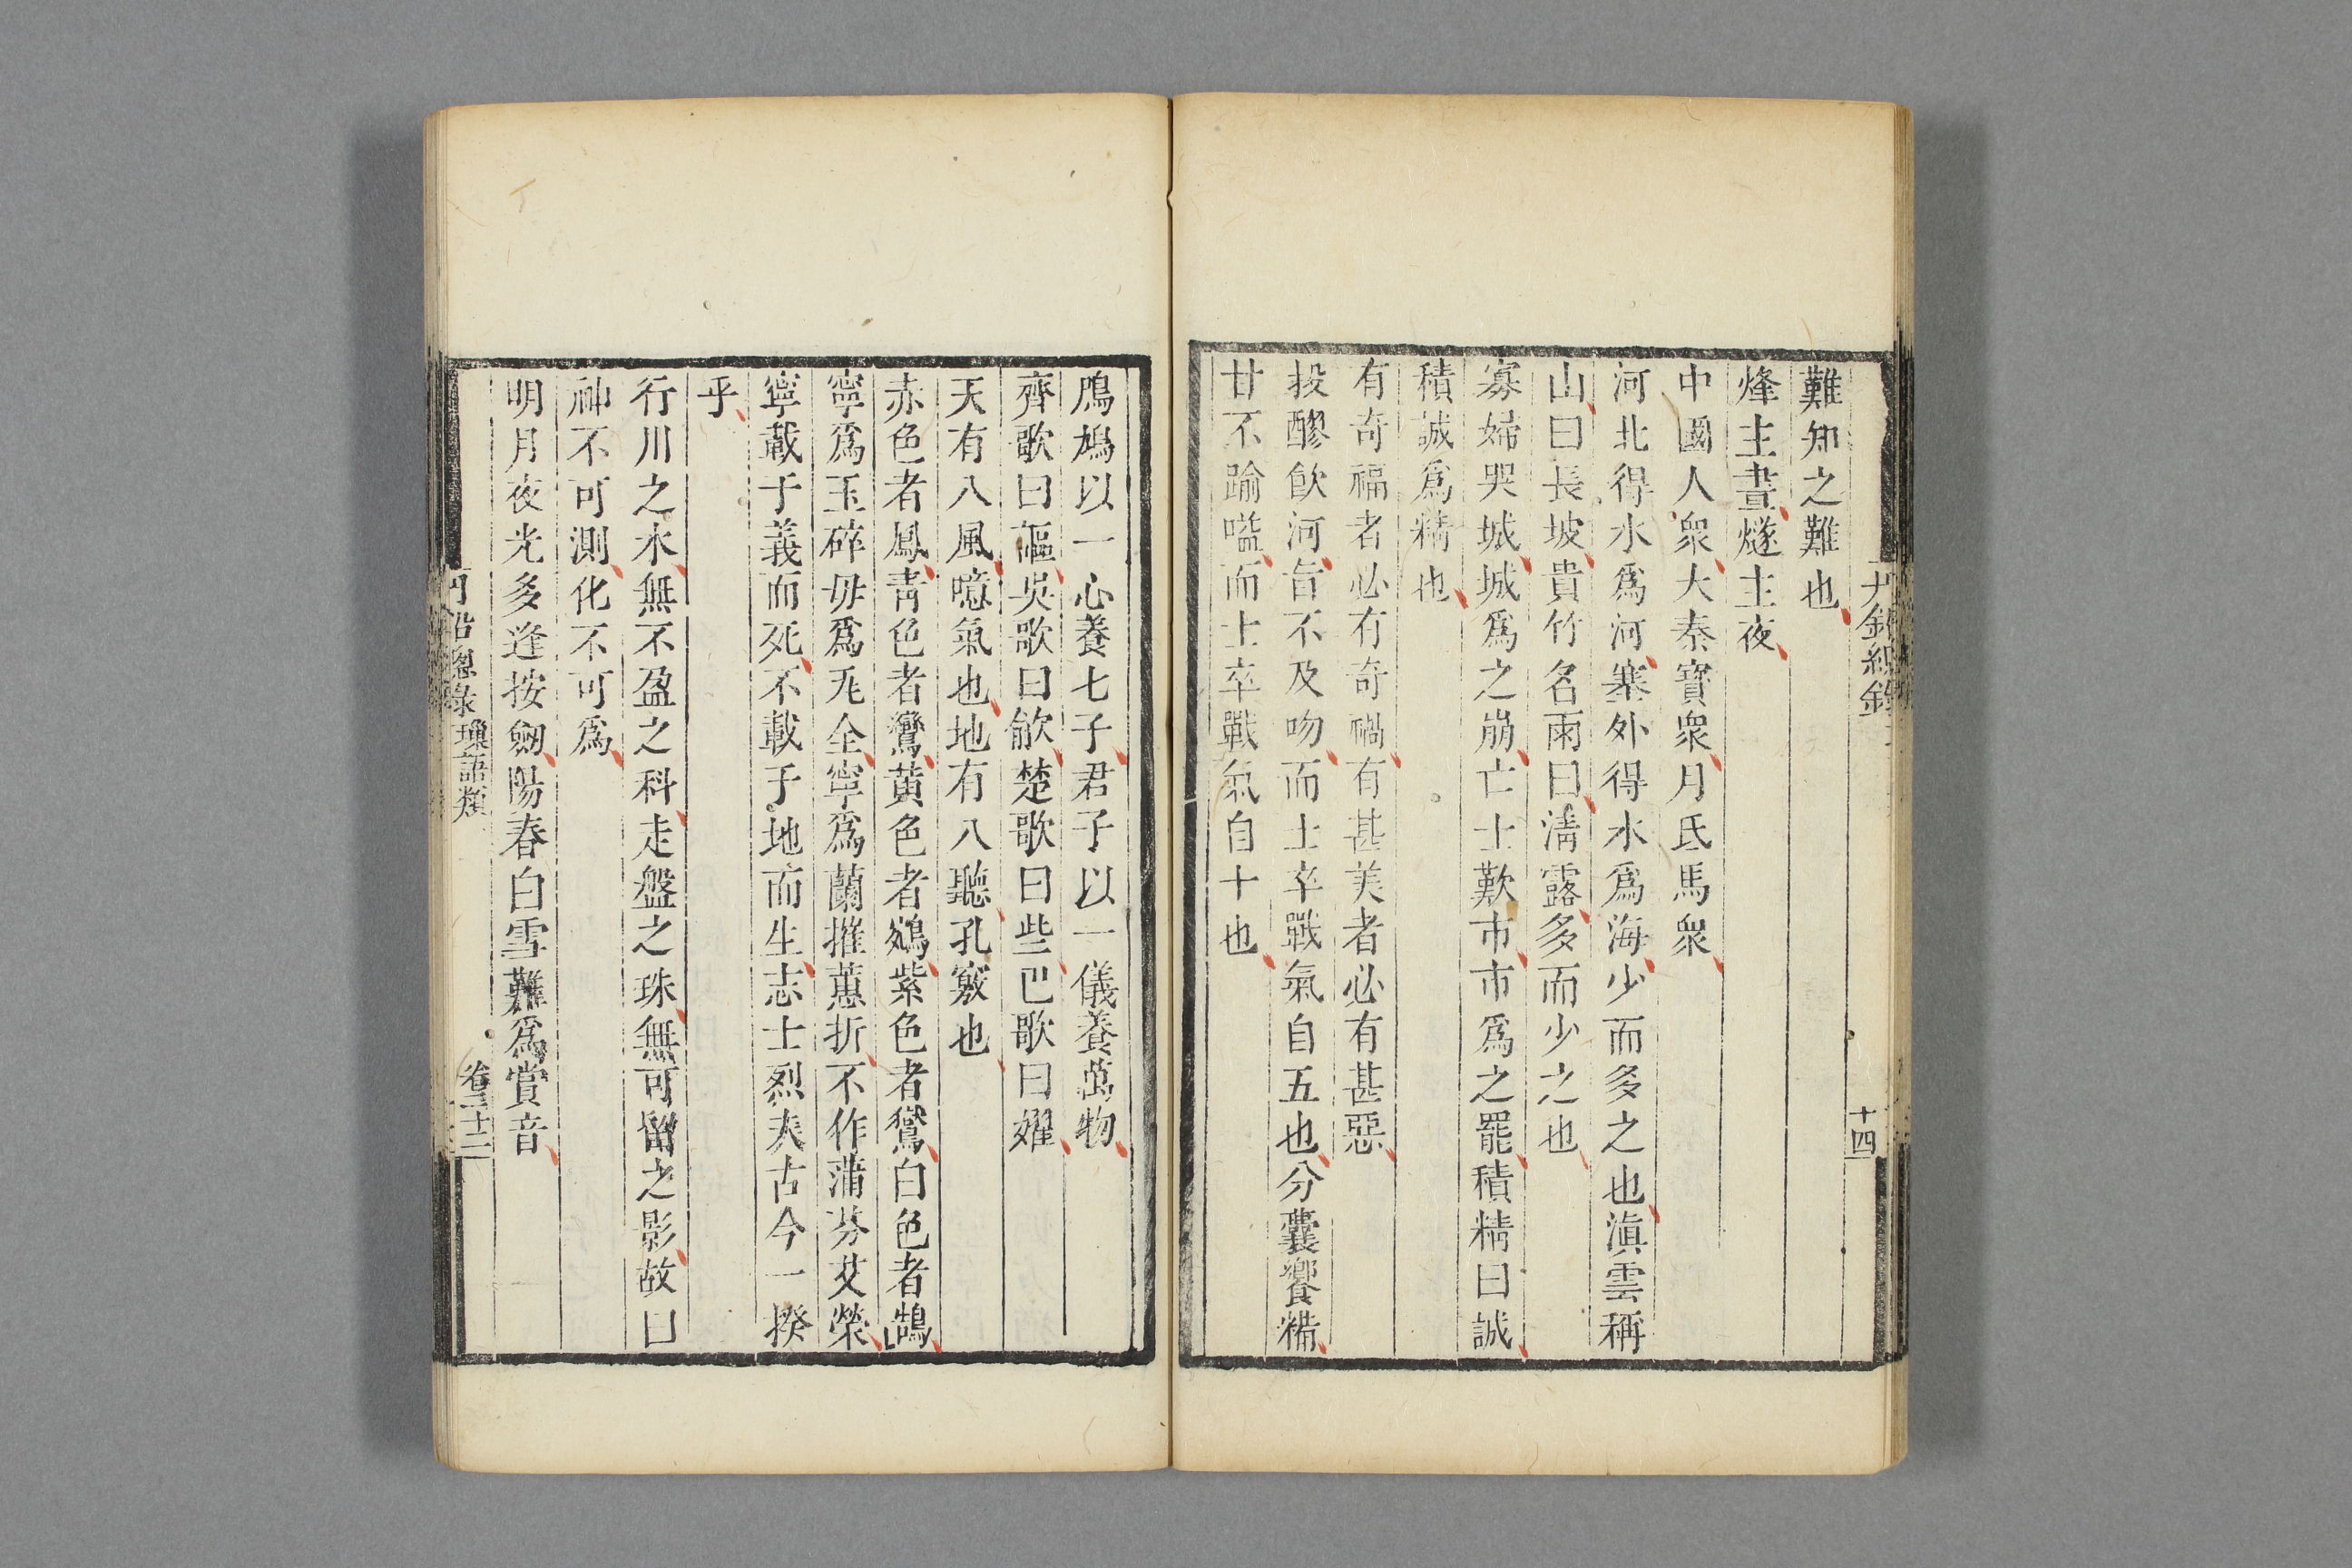 難知之難也
烽主晝燧主夜
中國人衆大秦寳衆月氏馬衆
河北得水爲河塞外得水爲海少而多之也滇雲稱
山曰長坡貴竹名雨曰淸露多而少之也
寡婦哭城城爲之崩亡士歎市市爲之罷積精曰誠
積誠爲精也
有奇福者必有奇禍有甚美者必有甚惡
投醪飲河旨不及吻而士卒戰氣自五也分囊饗糒
甘不踰嗌而士卒戰氣自十也
十四
鳲鳩以一心養七子君子以一儀養萬物
齊歌曰謳吳歌曰歈楚歌曰些巴歌曰嬥
天有八風噫氣也地有八聽孔竅也
赤色者鳳靑色者鸞黄色者鵷紫色者鸑白色者鵠
寧爲玉碎毋爲瓦全寧爲蘭摧蕙折不作蒲芬艾榮
寧載于義而死不載于地而生志士烈夫古今一揆
乎
行川之水無不盈之科走盤之珠無可留之影故曰
神不可測化不可爲
明月夜光多逢按劒陽春白雪難爲賞音
丹鉛總錄 瑣語類 卷二十二